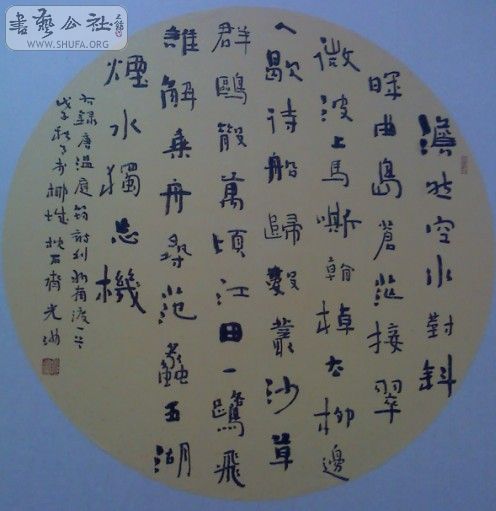 書藝公社
WWW.SHUFA.ORG
澹然空水對斜
暉曲島蒼茫接翠
微波上馬嘶看棹去柳邊
人歇待船歸數叢沙草
群鷗散萬頃江田一鷺飛
誰解乘舟尋范蠡五湖
煙水獨忘機
右錄唐溫庭筠詩利州南渡一首
戊子秋